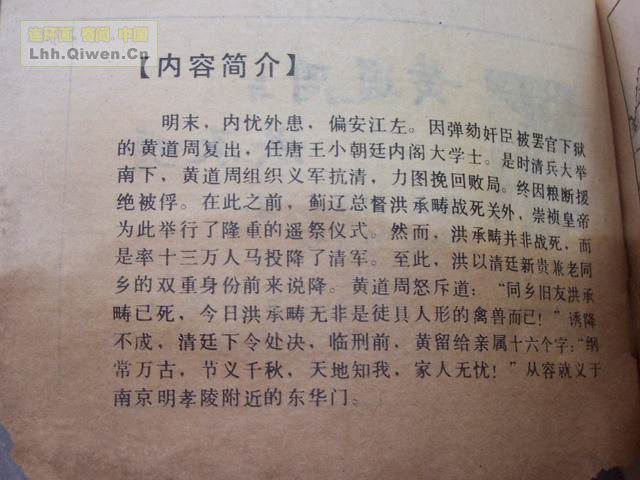 连环画.奇闻.中国
Lhh.Qiwen.Cn
【内容简介】
明末，内忧外患，偏安江左。因弹劾奸臣被罢官下狱
的黄道周复出，任唐王小朝廷内阁大学士。是时清兵大举
南下，黄道周组织义军抗清，力图挽回败局。终因粮断援
绝被俘。在此之前，蓟辽总督洪承畴战死关外，崇祯皇帝
为此举行了隆重的遥祭仪式。然而，洪承畴并非战死，而
是率十三万人马投降了清军。至此，洪以清廷新贵兼老同
乡的双重身份前来说降。黄道周怒斥道：“同乡旧友洪承
畴已死，今日洪承畴无非是徒具人形的禽兽而已！”诱降
不成，清廷下令处决，临刑前，黄留给亲属十六个字：“纲
常万古，节义千秋，天地知我，家人无忧！”从容就义于
南京明孝陵附近的东华门。